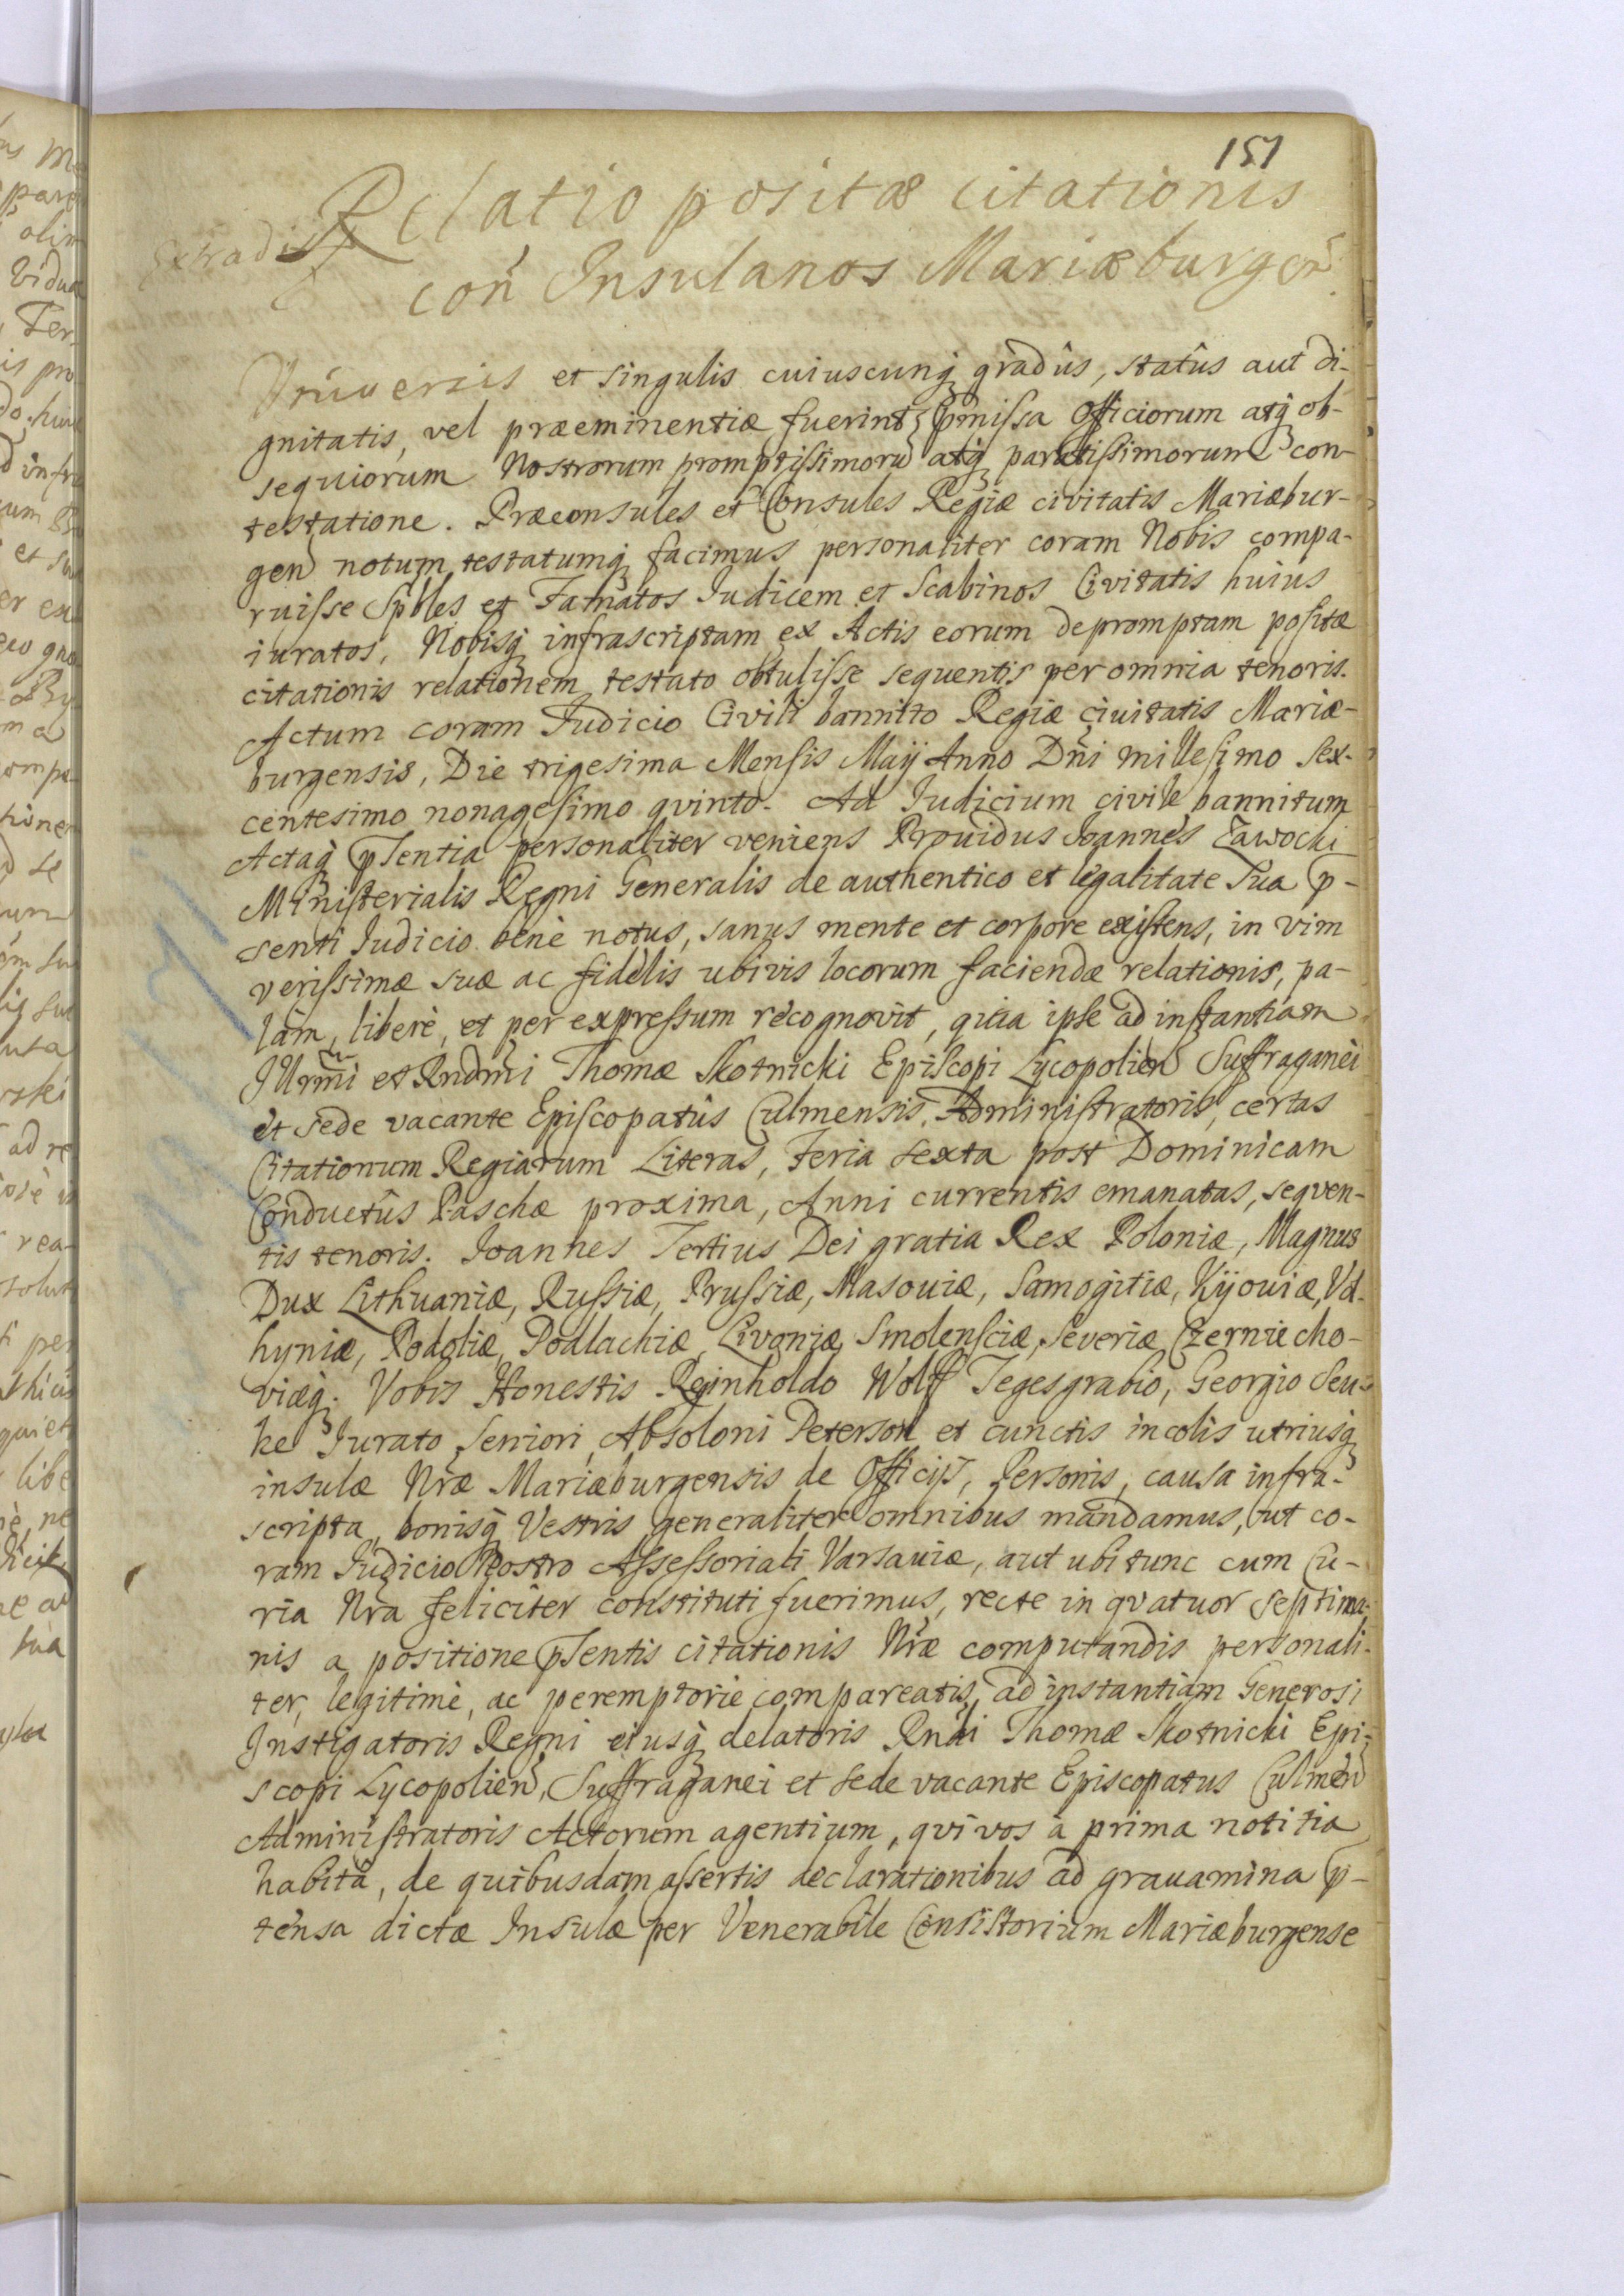 151
Relatio positæ citationis
Extradit
con̄ Insulanos Mariæburgen̄.
Vniuersis et singulis cuiuscunq; gradûs, statûs aut di-
gnitatis, vel præeminentiæ fuerint, p̄missa Officiorum atq; ob-
sequiorum Nostrorum promptissimorū atq; paratissimorum con-
testatione. Præconsules et Consules Regiæ civitatis Mariæbur-
gen̄ notum testatumq; facimus personaliter coram Nobis compa-
ruisse Spbles et Famatos Iudicem et Scabinos Civitatis huius
iuratos, Nobisq; infrascriptam ex Actis eorum depromptam positæ
citationis relationem testato obtulisse sequentis per omnia tenoris.
Actum coram Iudicio Civili bannito Regiæ ciuitatis Mariæ-
burgensis, Die trigesima Mensis Maÿ Anno Dn̄i millesimo sex-
centesimo nonagesimo qvinto. Ad Iudicium civile bannitum
Actaq; p̄sentia personaliter veniens Prouidus Joannes Zawocki
Ministerialis Regni Generalis de authentico et legalitate sua p̄-
senti Iudicio benè notus, sanus mente et corpore existens, in vim
verissimæ suæ ac fidelis ubivis locorum faciendæ relationis, pa-
làm, liberè, et per expressum recognovit, quia ipse ad instantiam
Illrm̄i et Rndm̄i Thomæ Skotnicki Episcopi Lycopolien̄ Suffraganei
et sede vacante Episcopatûs Culmensis Administratoris, certas
Citationum Regiarum Literas, Feria sexta post Dominicam
Conductûs Paschæ proxima, Anni currentis emanatas, seqven-
tis tenoris. Joannes Tertius Dei gratia Rex Poloniæ, Magnus
Dux Lithuaniæ, Russiæ, Prussiæ, Masouiæ, Samogitiæ, Kÿouiæ, Vol-
hyniæ, Podoliæ, Podlachiæ, Livoniæ, Smolensciæ, Severiæ Czerniecho-
viæq;. Vobis Honestis Reinholdo Wolff Tegesgrabio, Georgio Seu-
ke Iurato Seniori, Absoloni Peterson et cunctis incolis utriusq;
insulæ Nr̄æ Mariæburgensis de Officijs, Personis, causa infra-
scripta, bonisq; Vestris generaliter omnibus mandamus, ut co-
ram Iudicio Nostro Assessoriali Varsaviæ, aut ubi tunc cum Cu-
ria Nr̄a feliciter constituti fuerimus, recte in qvatuor septima-
nis a positione p̄sentis citationis Nr̄æ computandis personali-
ter, legitimè, ac peremptorie compareatis, ad instantiam Generosi
Instigatoris Regni eiusq; delatoris Rndi Thomæ Skotnicki Epi-
scopi Lycopolien̄, Suffraganei et sede vacante Episcopatus Culmen̄
Administratoris Actorum agentium, qvi vos à prima notitia
habitâ, de quibusdam assertis declarationibus ad grauamina p̄-
tensa dictæ Insulæ per Venerabile Consistorium Mariæburgense